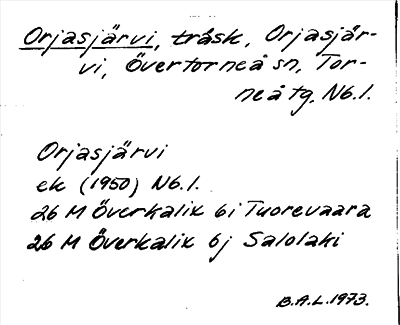 Orjasjärvi, träsk, Orjasjär-
vi, Övertorneå sn, Tor-
neå tg. Nb.l.
Orjasjärvi
ek (1950) Nb.l.
26 M Överkalix 6i Tuorevaara
26 M Överkalix 6j Salolaki
B.A.L. 1973.